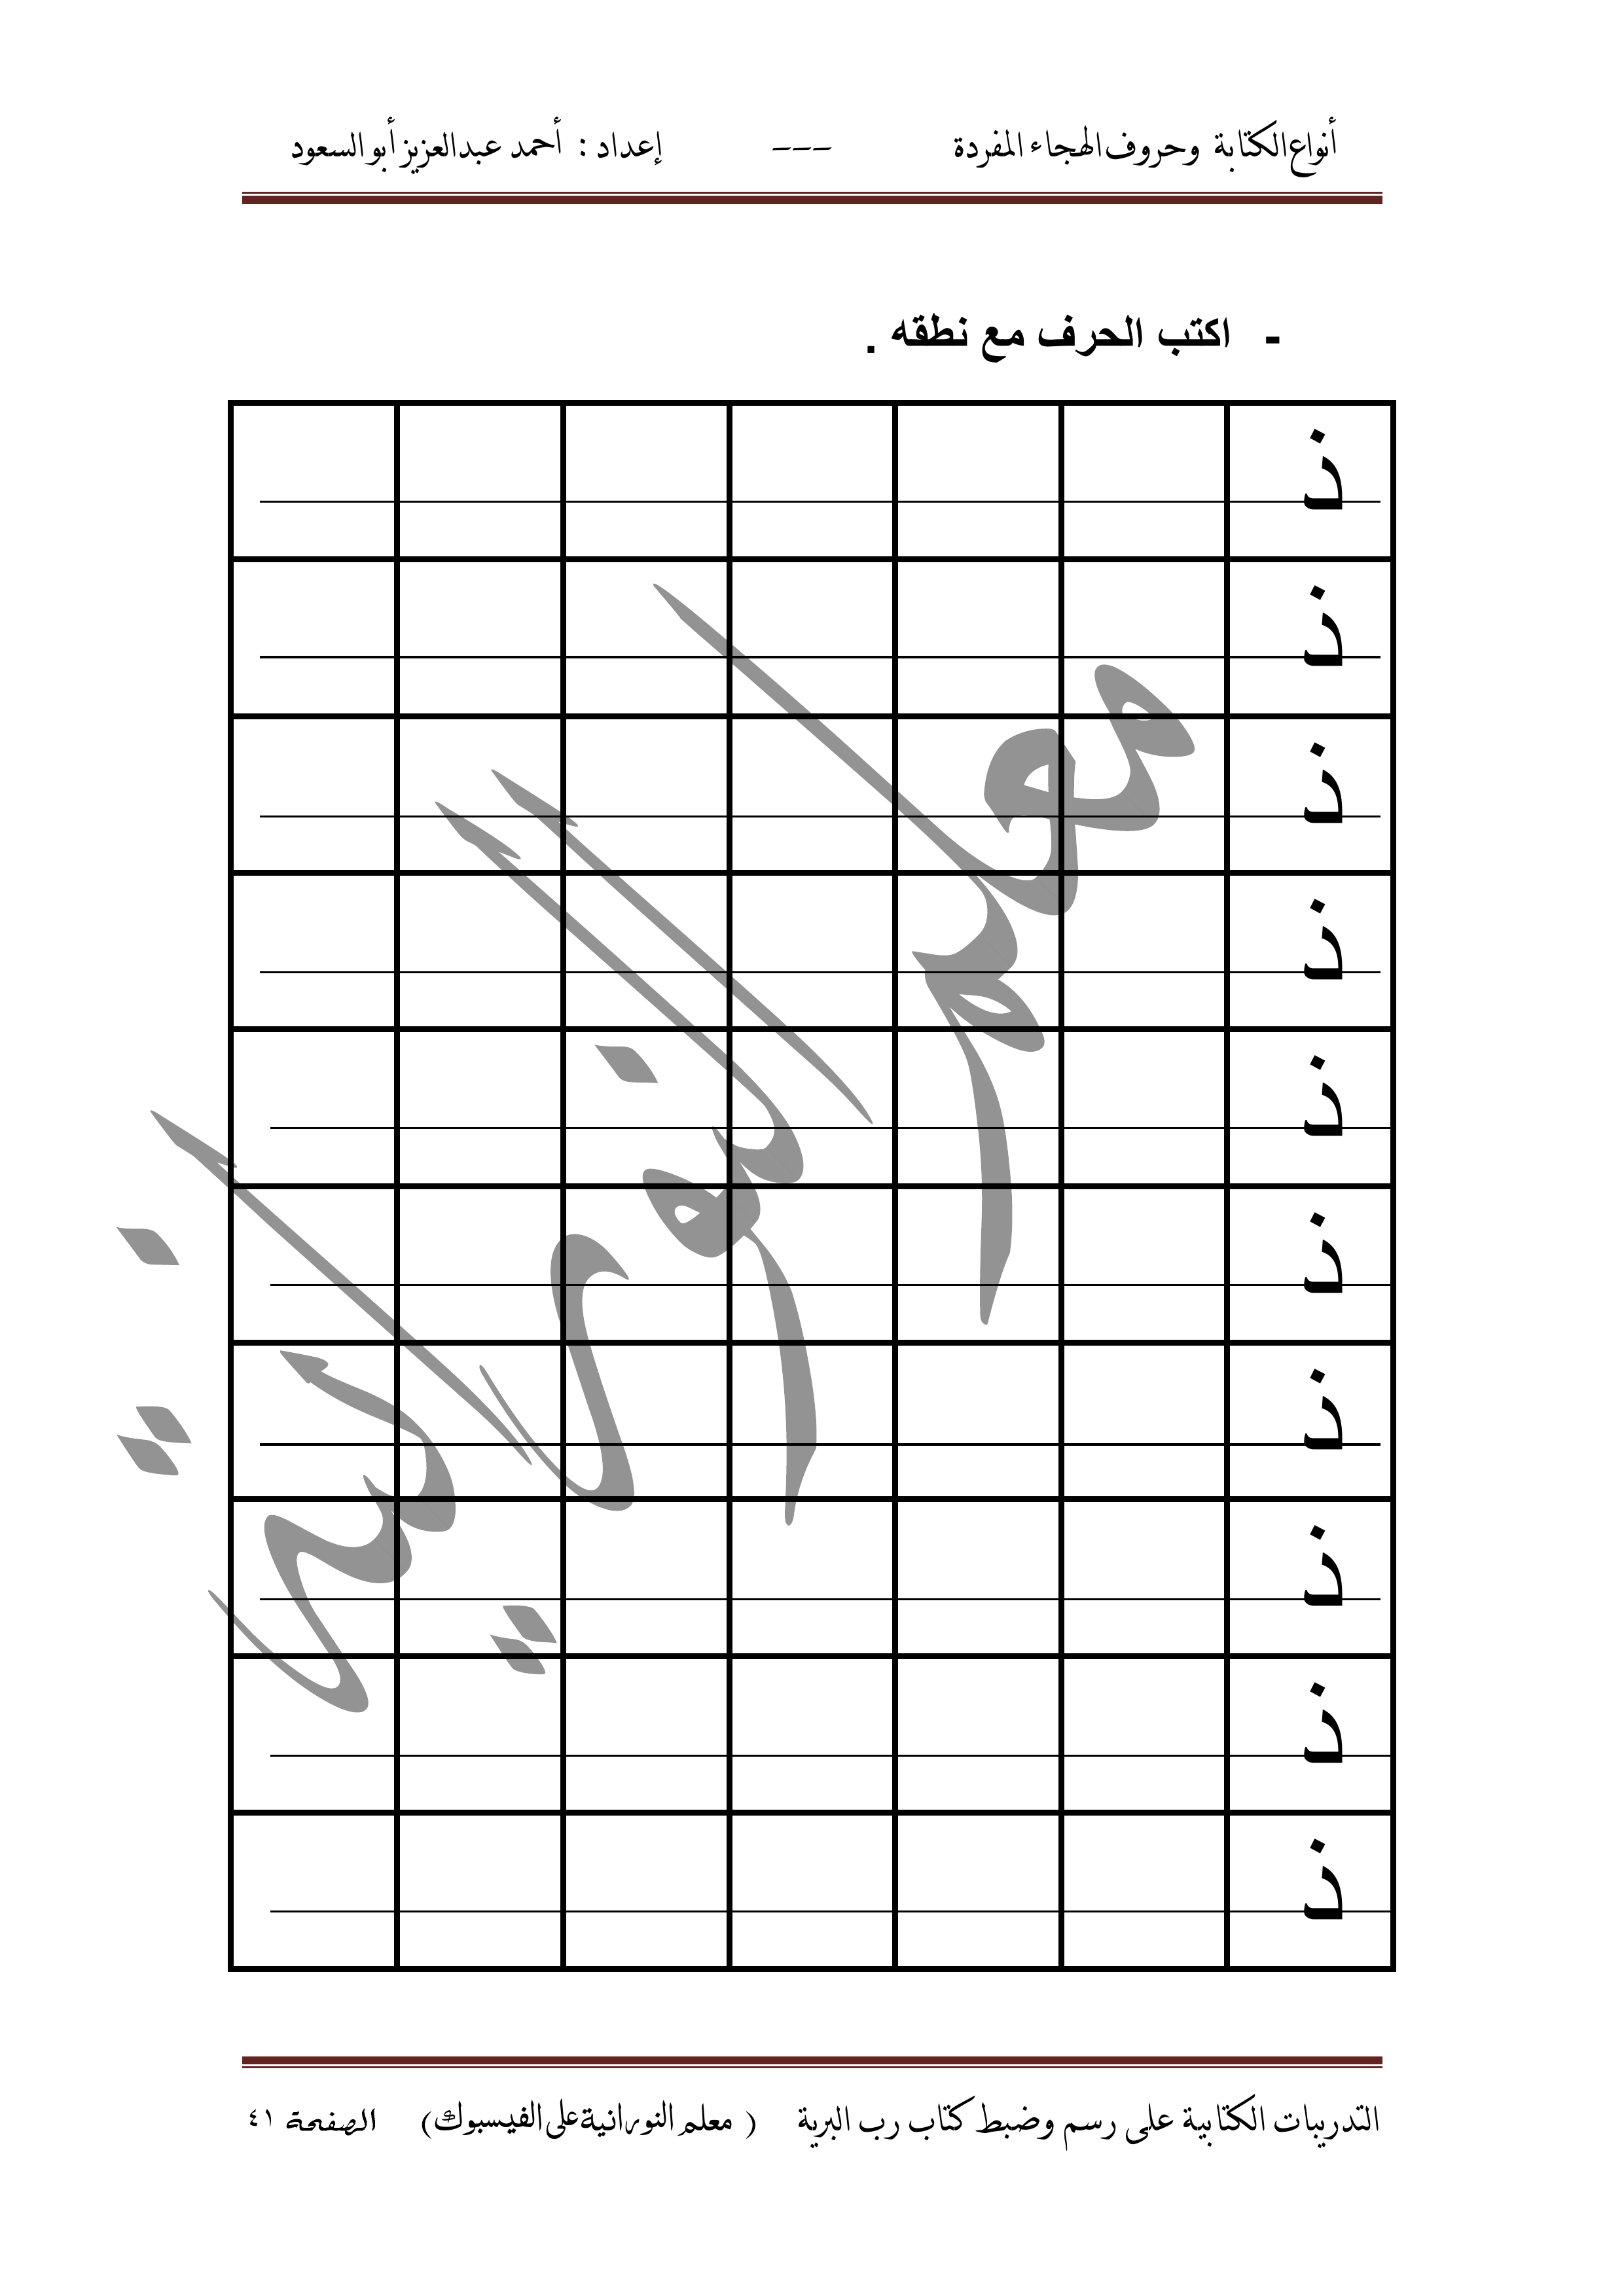 أنواع الكتابة وحروف الهجاء المفردة --- إعداد : أحمد عبدالعزيز أبو السعود
- اكتب الحرف مع نطقه .
ز
ز
ز
ز
ز
ز
ز
ز
ز
ز
معلم النورانية
التدريبات الكتابية على رسم وضبط كتاب رب البرية ( معلم النورانية على الفيسبوك) الصفحة ٤١